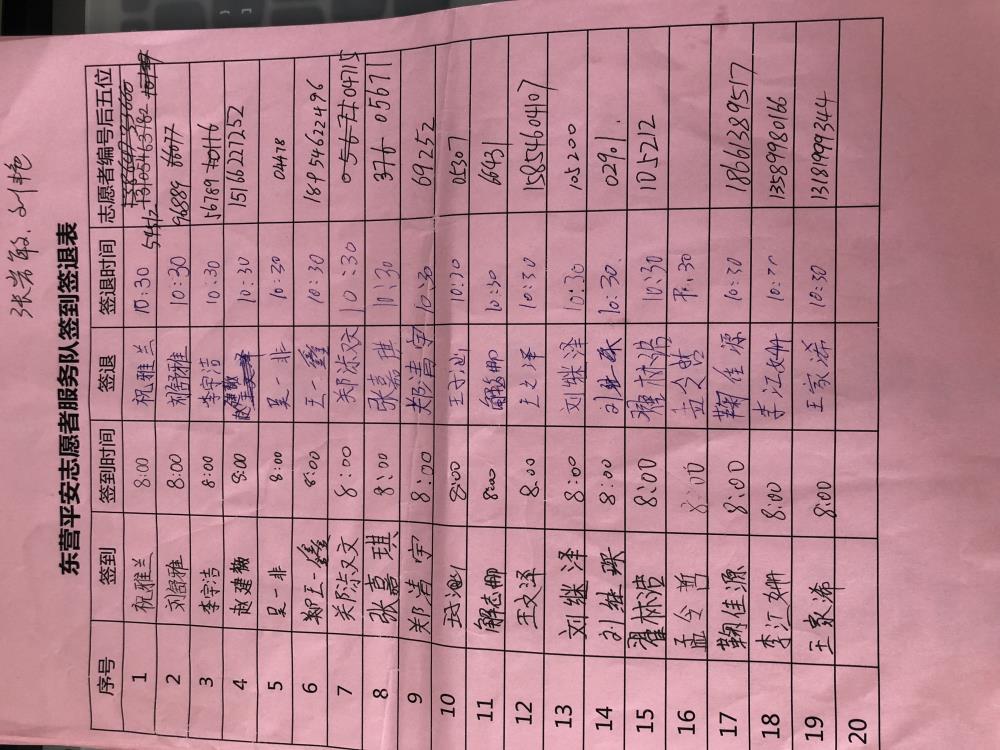 张岩敏、刘艳
东营平安志愿者服务队签到签退表
序号 签到 签到时间 签退 签退时间 志愿者编号后五位
1 祝雅兰 8:00 祝雅兰 10:30 54512
2 刘舒雅 8:00 刘舒雅 10:30 96889
3 李宇洁 8:00 李宇洁 10:30 56789
4 赵建薇 8:00 赵建薇 10:30 15166227252
5 吴一非 8:00 吴一非 10:30 04478
6 王一鑫 8:00 王一鑫 10:30 18954622496
7 关淙文 8:00 10:30
8 张嘉琪 8:00 张嘉琪 10:30 376 05671
9 郑清宇 8:00 郑清宇 10:30 69252
10 8:00 10:30 05307
11 解志娜 8:00 解志娜 10:30 66931
12 王文泽 8:00 王文泽 10:30 15854604107
13 刘继泽 8:00 刘继泽 10:30 105200
14 刘继 8:00 刘继 10:30 02901.
15 翟林浩 8:00 翟林浩 10:30 105212
16 孟令哲 8:00 孟令哲 10:30
17 鞠佳源 8:00 鞠佳源 10:30 18661389517
18 李江姗 8:00 李江姗 10:30 13589980166
19 王家浠 8:00 王家浠 10:30 13181999344
20